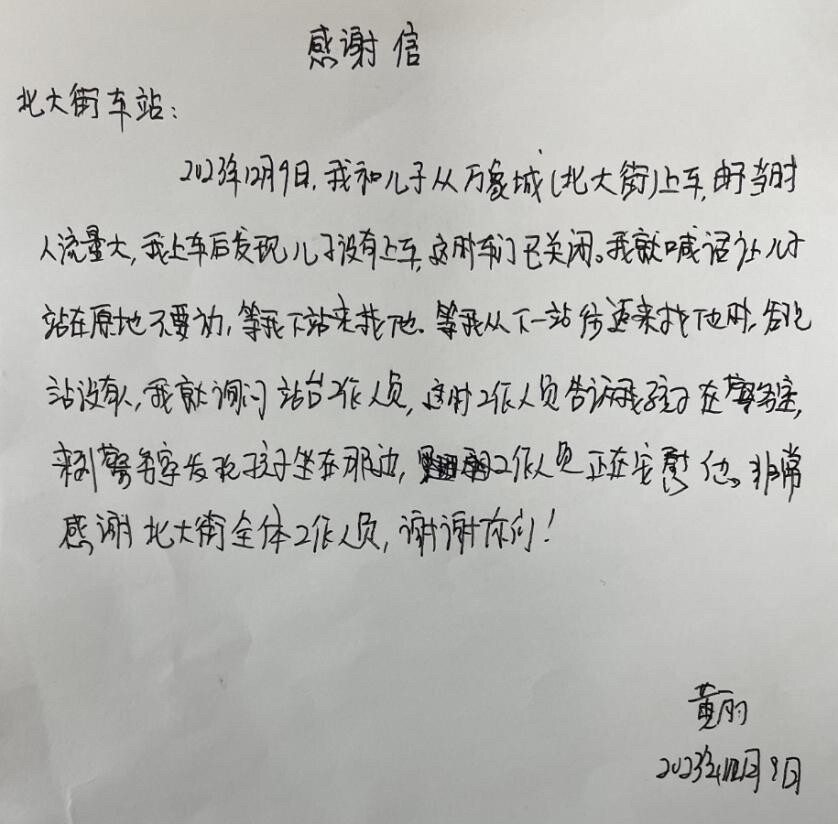 感谢信
北大街车站：
2023年12月9日，我和儿子从万象城(北大街)上车，由于当时
人流量大，我上车后发现儿子没有上车，这时车门已关闭。我就喊话让儿子
站在原地不要动，等我下站来找他。等我从下一站返来找他时，发现
站没有人，我就询问站台工作人员，这时工作人员告诉我孩子在警务室，
来到警务室发现孩子坐在那边，工作人员正在安慰他。非常
感谢北大街全体工作人员，谢谢你们！
黄
2023年12月9日